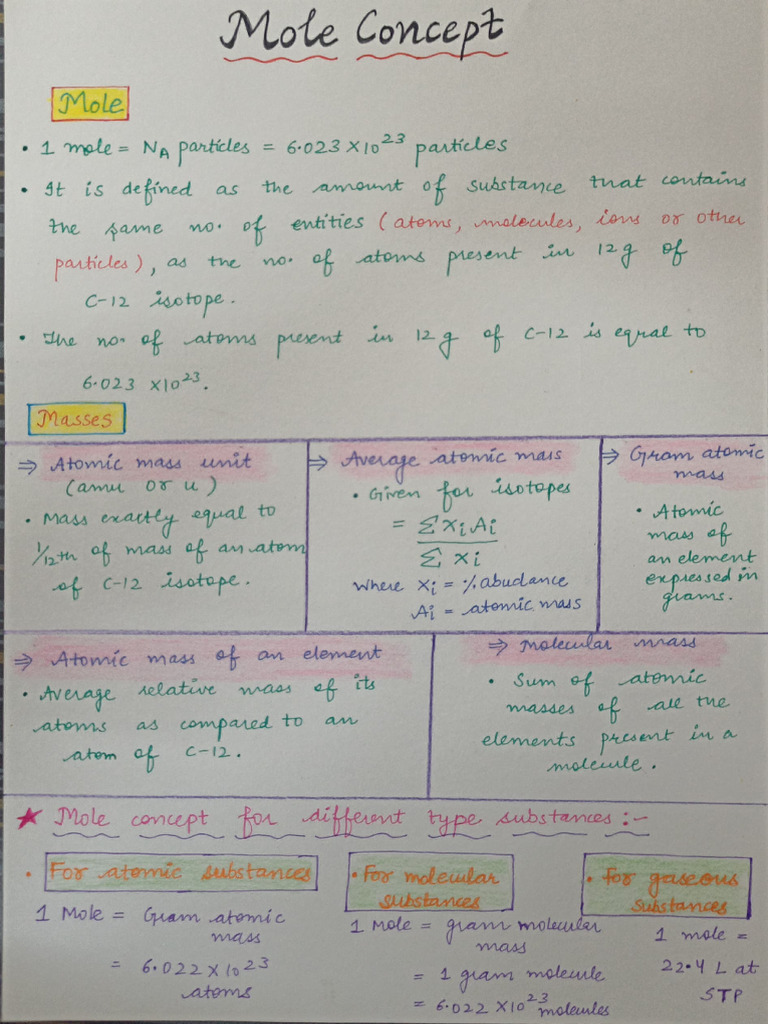 Mole Concept
Mole
• 1 mole = NA particles = 6.023 X10²³ particles
• It is defined as the amount of substance that contains
the same no. of entities (atoms, molecules, ions or other
particles), as the no. of atoms present in 12g of
C-12 isotope.
• The no. of atoms present in 12g of C-12 is equal to
6.023 X10²³.
Masses
⇒ Atomic mass unit
(amu or u)
• Mass exactly equal to
1/12th of mass of an atom
of C-12 isotope.
⇒ Average atomic mass
• Given for isotopes
= Σ Xi Ai
Σ Xi
Where Xi = % abudance
Ai = atomic mass
⇒ Gram atomic
mass
• Atomic
mass of
an element
expressed in
grams.
⇒ Atomic mass of an element
• Average relative mass of its
atoms as compared to an
atom of C-12.
⇒ Molecular mass
• Sum of atomic
masses of all the
elements present in a
molecule.
★ Mole concept for different type substances :-
• For atomic substances
1 Mole = Gram atomic
mass
= 6.022 X 10²³
atoms
• For molecular
substances
1 Mole = gram molecular
mass
= 1 gram molecule
= 6.022 X10²³ molecules
• For gaseous
substances
1 mole =
22.4 L at
STP